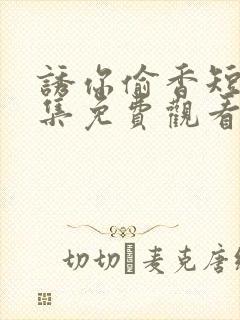 誘你偷香短
集免費觀看
切切 麦克唐纳